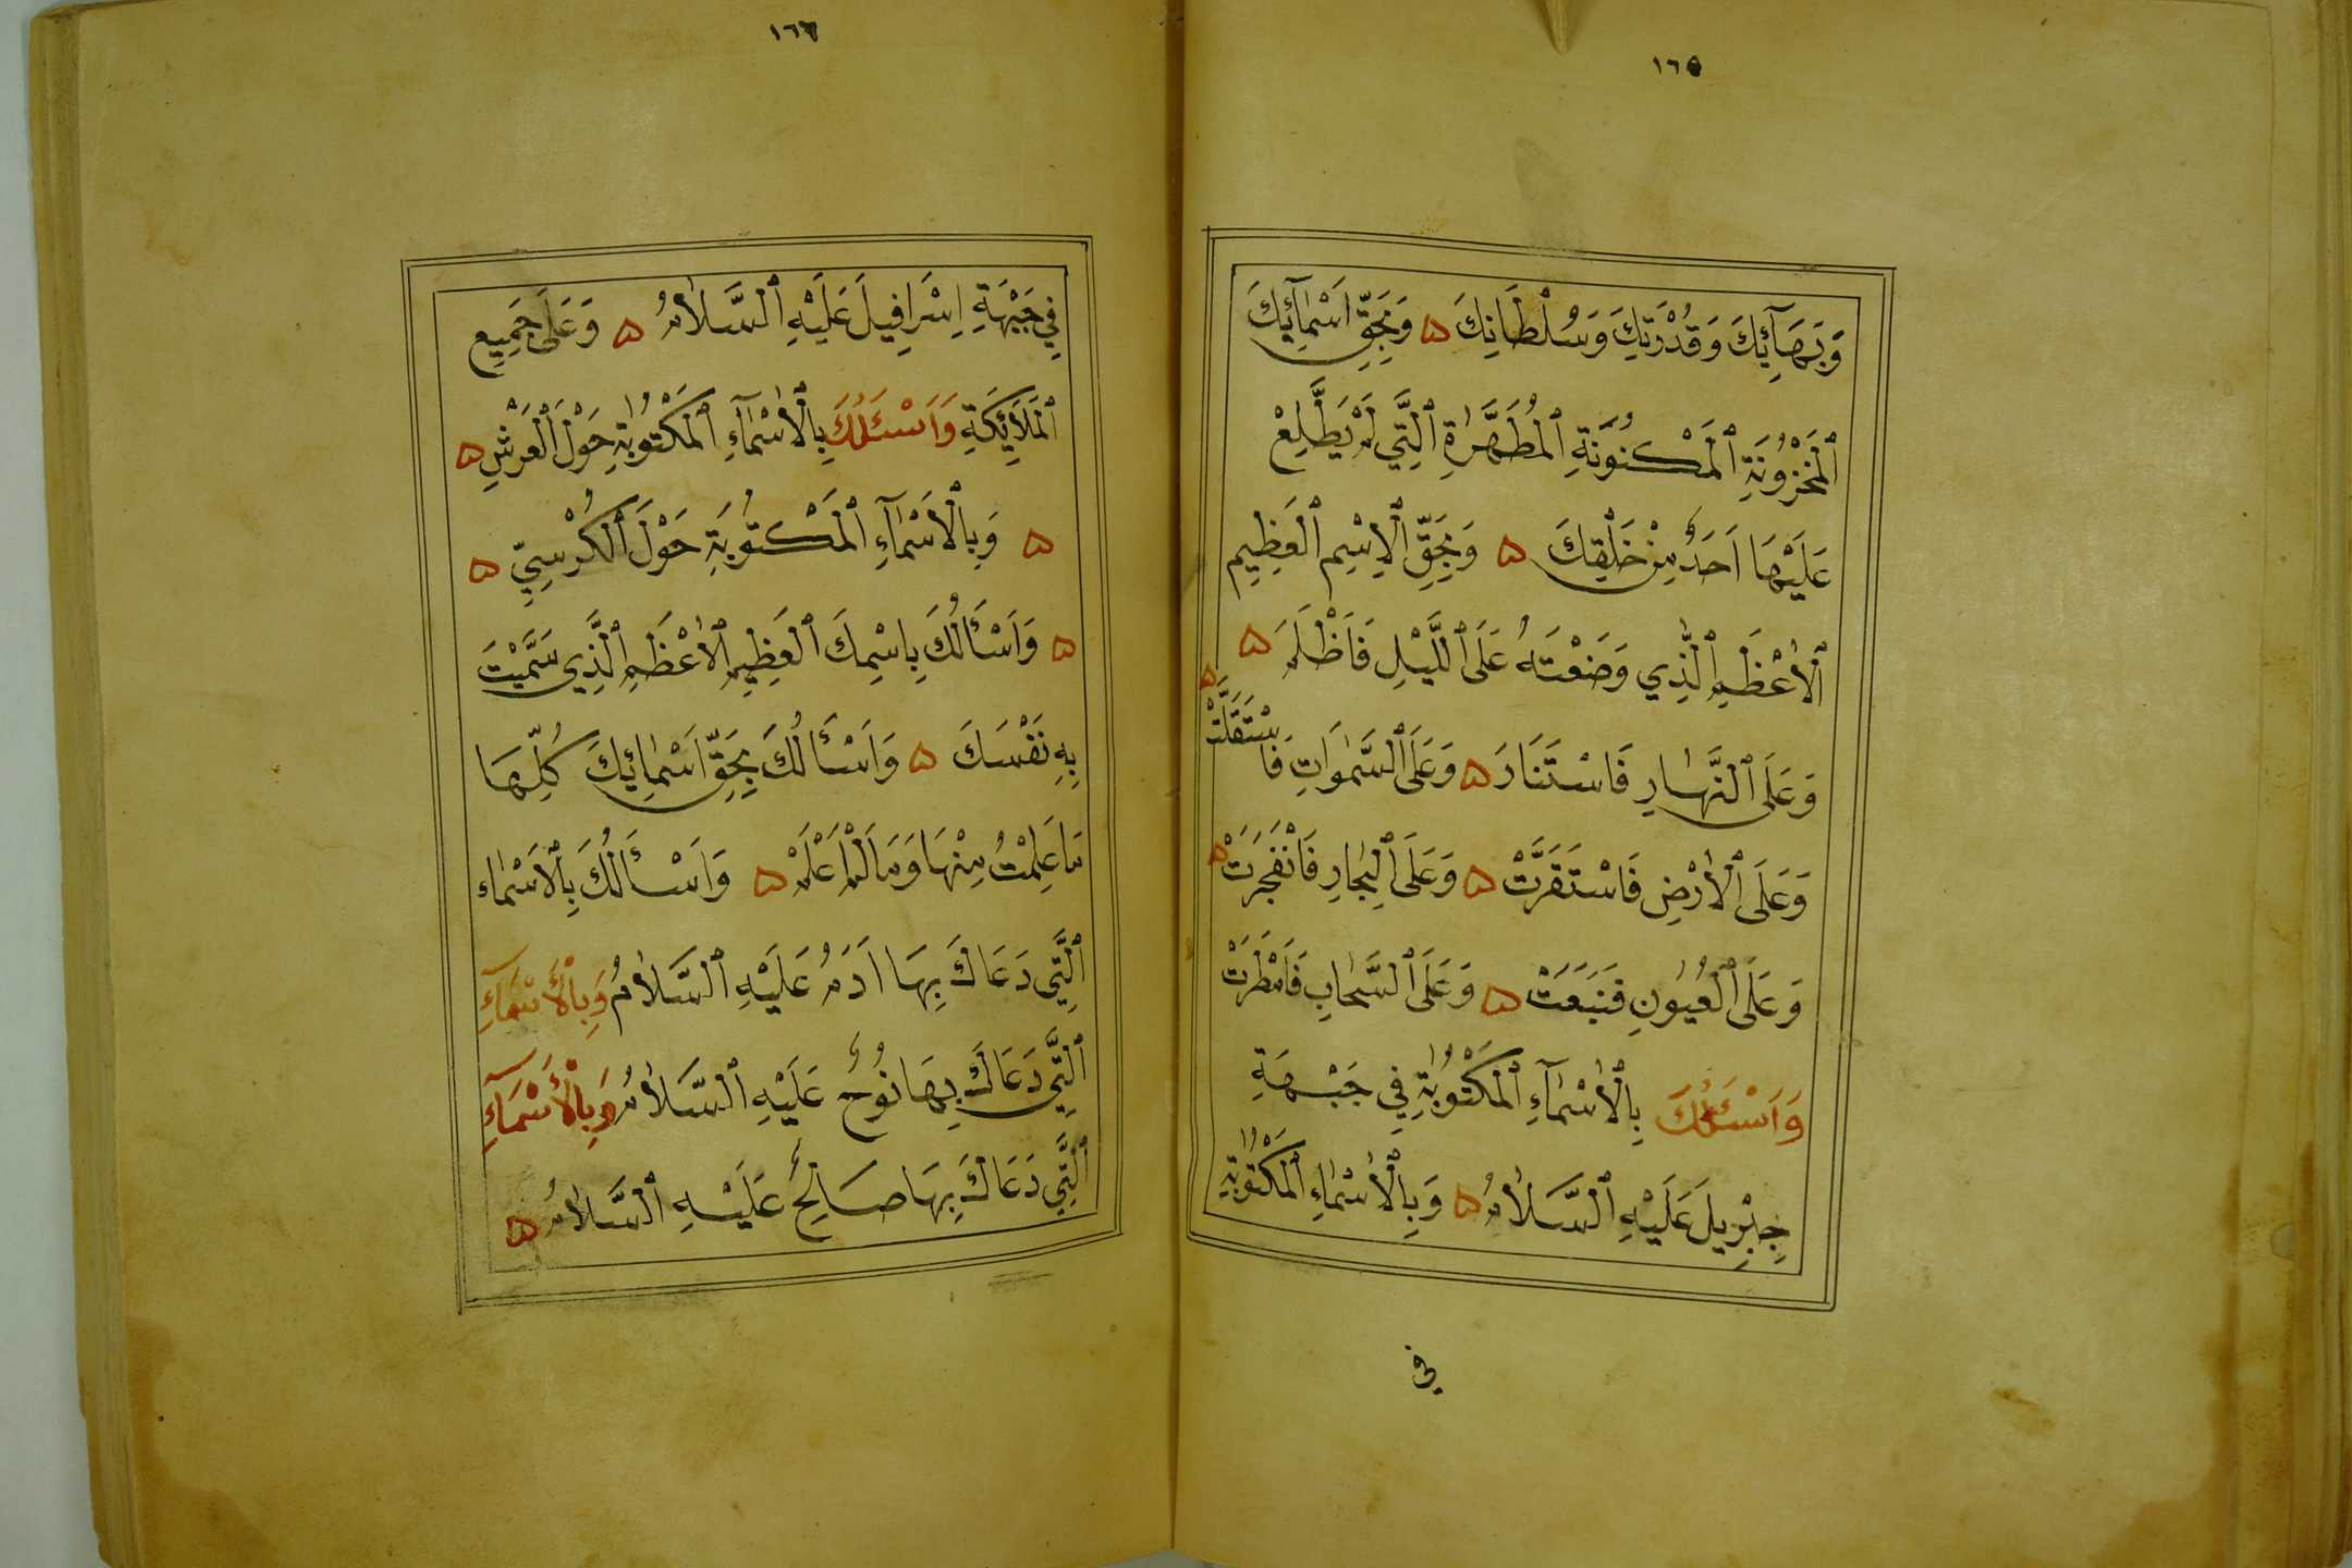 ١٦٥
وَبَهَآئِكَ وَقُدْرَتِكَ وَسُلْطَانِكَ ۵ وَبِحَقِّ اَسْمَآئِكَ
ٱلْمَخْزُونَةِ ٱلْمَكْنُونَةِ ٱلْمُطَهَّرَةِ ٱلَّتِي لَمْ يَطَّلِعْ
عَلَيْهَا اَحَدٌ مِنْ خَلْقِكَ ۵ وَبِحَقِّ ٱلْاِسْمِ ٱلْعَظِيمِ
ٱلْأَعْظَمِ ٱلَّذِي وَضَعْتَهُ عَلَى ٱللَّيْلِ فَاَظْلَمَ ۵
وَعَلَى ٱلنَّهَارِ فَاسْتَنَارَ ۵ وَعَلَى ٱلسَّمٰوَاتِ فَاسْتَقَلَّتْ ۵
وَعَلَى ٱلْأَرْضِ فَاسْتَقَرَّتْ ۵ وَعَلَى ٱلْبِحَارِ فَانْفَجَرَتْ ۵
وَعَلَى ٱلْعُيُونِ فَنَبَعَتْ ۵ وَعَلَى ٱلسَّحَابِ فَاَمْطَرَتْ
وَاَسْئَلُكَ بِٱلْأَسْمَآءِ ٱلْمَكْتُوبَةِ فِي جَبْهَةِ
جِبْرِيلَ عَلَيْهِ ٱلسَّلَامُ ۵ وَبِٱلْأَسْمَاءِ ٱلْمَكْتُوبَةِ
في
١٦٦
فِي جَبْهَةِ اِسْرَافِيلَ عَلَيْهِ ٱلسَّلَامُ ۵ وَعَلَى جَمِيعِ
ٱلْمَلَآئِكَةِ وَاَسْئَلُكَ بِٱلْأَسْمَآءِ ٱلْمَكْتُوبَةِ حَوْلَ ٱلْعَرْشِ ۵
۵ وَبِٱلْأَسْمَآءِ ٱلْمَكْتُوبَةِ حَوْلَ ٱلْكُرْسِيِّ ۵
۵ وَاَسْأَلُكَ بِاسْمِكَ ٱلْعَظِيمِ ٱلْأَعْظَمِ ٱلَّذِي سَمَّيْتَ
بِهِ نَفْسَكَ ۵ وَاَسْأَلُكَ بِحَقِّ اَسْمَائِكَ كُلِّهَا
مَا عَلِمْتُ مِنْهَا وَمَا لَمْ اَعْلَمْ ۵ وَاَسْأَلُكَ بِٱلْاَسْمَاء
ٱلَّتِي دَعَاكَ بِهَا اَدَمُ عَلَيْهِ ٱلسَّلَامُ وَبِٱلْأَسْمَآءِ
ٱلَّتِي دَعَاكَ بِهَا نُوحٌ عَلَيْهِ ٱلسَّلَامُ وَبِٱلْأَسْمَآءِ
ٱلَّتِي دَعَاكَ بِهَا صَالِحٌ عَلَيْهِ ٱلسَّلَامُ ۵